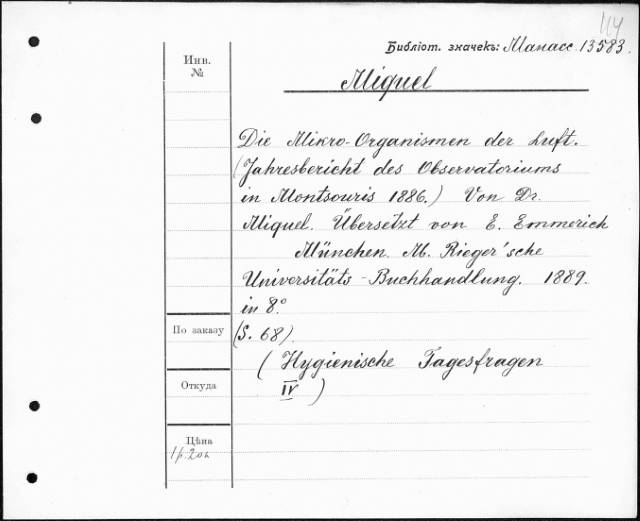 114
Библіот. значекъ: Манасс. 13583.
Инв.
№
Miquel
Die Mikro-Organismen der Luft.
(Jahresbericht des Observatoriums
in Montsouris 1886.) Von Dr.
Miquel. Übersetzt von E. Emmerich
München. M. Rieger'sche
Universitäts-Buchhandlung. 1889.
in 8.°
По заказу
(S. 68).
(Hygienische Tagesfragen
Откуда
IV)
Цѣна
1р. 20к